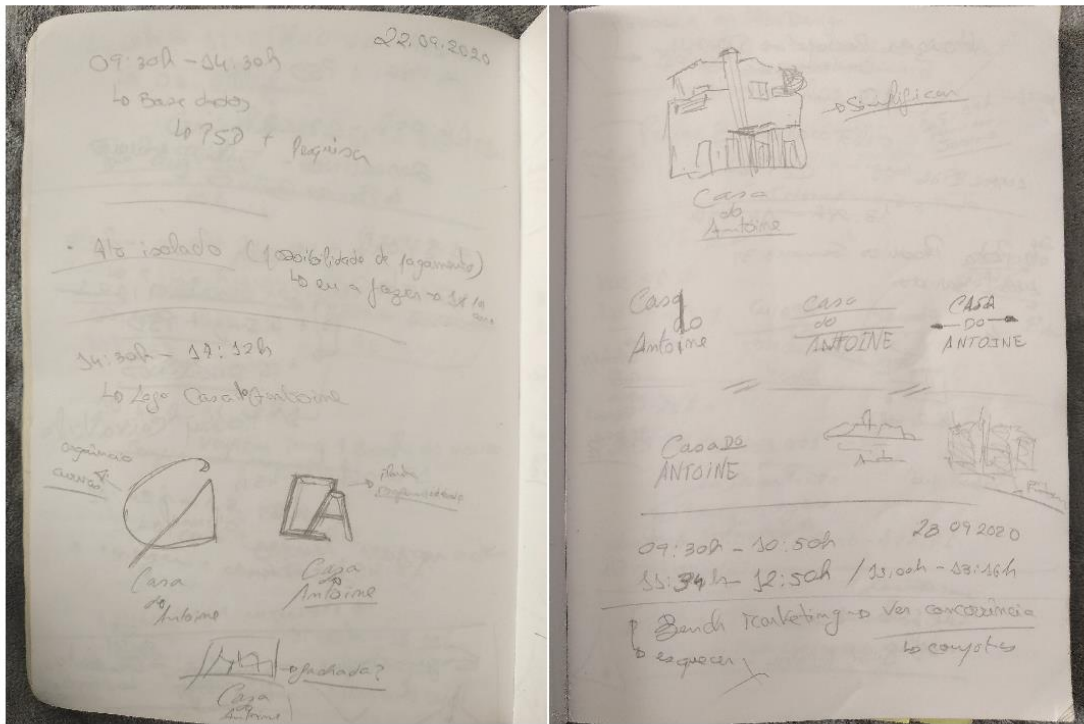 22.09.2020
09:30h - 14:30h
Base dados
PSD + Pesquisa
Ato isolado (possibilidade de pagamento)
eu a fazer
14:30h - 17:12h
Logo Casa do Antoine
orgânico
curvas
Casa
do
Antoine
Casa
do
Antoine
fachada?
Casa
Antoine
Simplificar
Casa
do
Antoine
Casa
do
Antoine
Casa
do
ANTOINE
CASA
DO
ANTOINE
Casa DO
ANTOINE
23 09 2020
09:30h - 10:50h
11:34h - 12:50h / 13:00h - 13:16h
Bench Marketing ver concorrência
esquecer